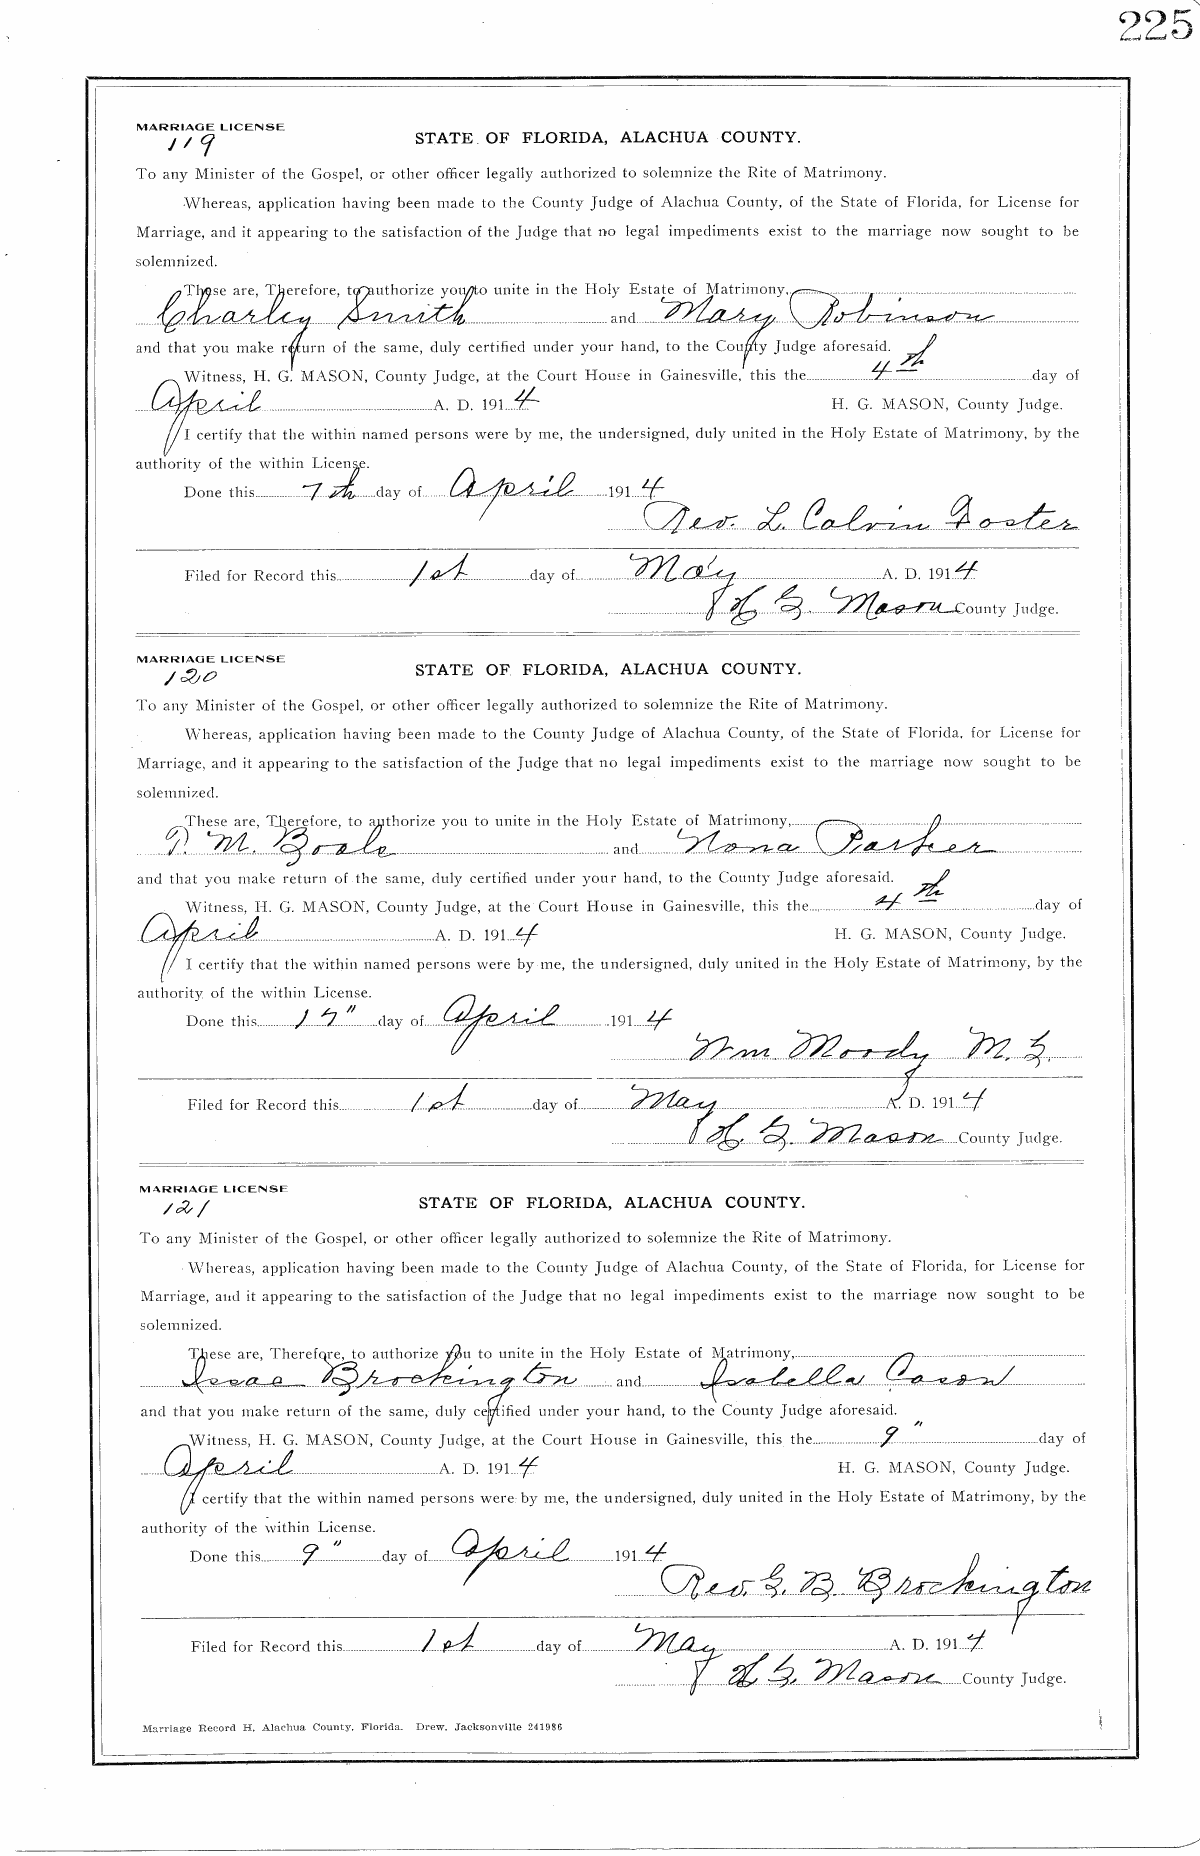 225
MARRIAGE LICENSE
119
STATE OF FLORIDA, ALACHUA COUNTY.
To any Minister of the Gospel, or other officer legally authorized to solemnize the Rite of Matrimony.
Whereas, application having been made to the County Judge of Alachua County, of the State of Florida, for License for
Marriage, and it appearing to the satisfaction of the Judge that no legal impediments exist to the marriage now sought to be
solemnized.
These are, Therefore, to authorize you to unite in the Holy Estate of Matrimony,
Charley Smith and Mary Robinson
and that you make return of the same, duly certified under your hand, to the County Judge aforesaid.
Witness, H. G. MASON, County Judge, at the Court House in Gainesville, this the 4th day of
April A. D. 1914 H. G. MASON, County Judge.
I certify that the within named persons were by me, the undersigned, duly united in the Holy Estate of Matrimony, by the
authority of the within License.
Done this 7th day of April 1914
Rev. L. Calvin Foster
Filed for Record this 1st day of May A. D. 1914
H G. Mason County Judge.
MARRIAGE LICENSE
120
STATE OF FLORIDA, ALACHUA COUNTY.
To any Minister of the Gospel, or other officer legally authorized to solemnize the Rite of Matrimony.
Whereas, application having been made to the County Judge of Alachua County, of the State of Florida, for License for
Marriage, and it appearing to the satisfaction of the Judge that no legal impediments exist to the marriage now sought to be
solemnized.
These are, Therefore, to authorize you to unite in the Holy Estate of Matrimony,
P. M. Boals and Nona Parker
and that you make return of the same, duly certified under your hand, to the County Judge aforesaid.
Witness, H. G. MASON, County Judge, at the Court House in Gainesville, this the 4th day of
April A. D. 1914 H. G. MASON, County Judge.
I certify that the within named persons were by me, the undersigned, duly united in the Holy Estate of Matrimony, by the
authority of the within License.
Done this 17" day of April 1914
Wm. Moody M. G.
Filed for Record this 1st day of May A. D. 1914
H. G. Mason County Judge.
MARRIAGE LICENSE
121
STATE OF FLORIDA, ALACHUA COUNTY.
To any Minister of the Gospel, or other officer legally authorized to solemnize the Rite of Matrimony.
Whereas, application having been made to the County Judge of Alachua County, of the State of Florida, for License for
Marriage, and it appearing to the satisfaction of the Judge that no legal impediments exist to the marriage now sought to be
solemnized.
These are, Therefore, to authorize you to unite in the Holy Estate of Matrimony,
Isaac Brockington and Isabella Cason
and that you make return of the same, duly certified under your hand, to the County Judge aforesaid.
Witness, H. G. MASON, County Judge, at the Court House in Gainesville, this the 9" day of
April A. D. 1914 H. G. MASON, County Judge.
I certify that the within named persons were by me, the undersigned, duly united in the Holy Estate of Matrimony, by the
authority of the within License.
Done this 9" day of April 1914
Rev. G. B. Brockington
Filed for Record this 1st day of May A. D. 1914
H G. Mason County Judge.
Marriage Record H, Alachua County, Florida. Drew, Jacksonville 241986